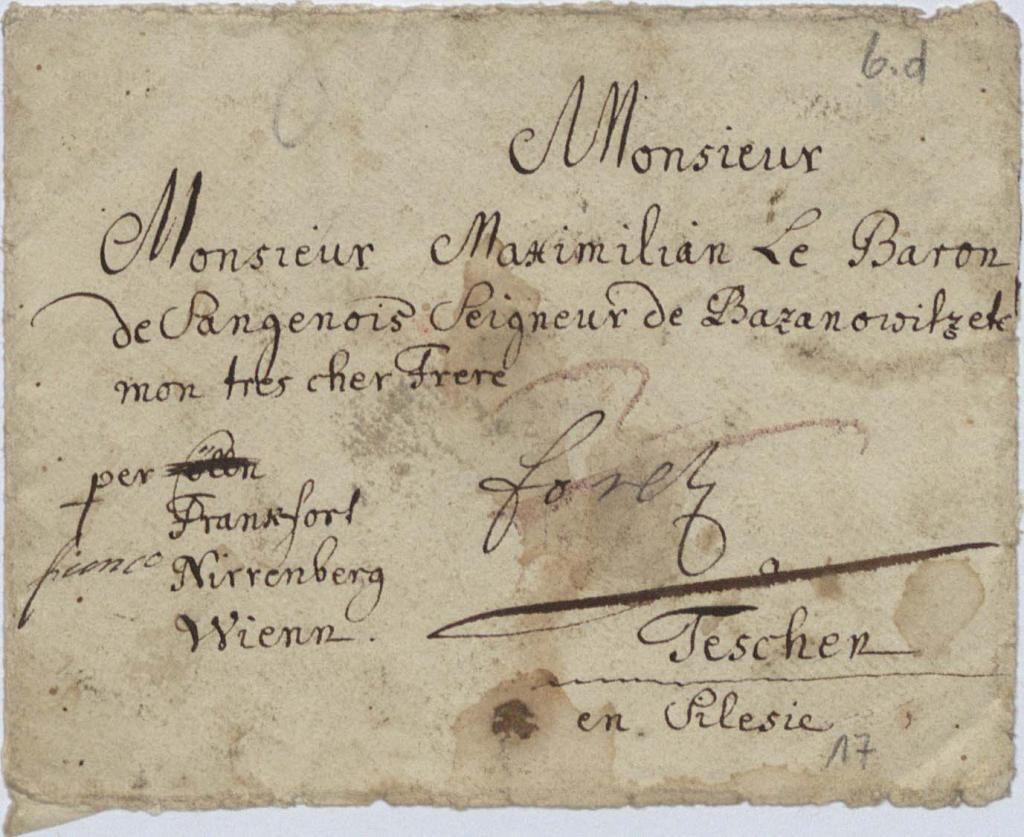 6.d
Monsieur
Monsieur Maximilian Le Baron
de Sangenois Seigneur de Bazanowitz etc
mon tres cher Frere
per Cölln
Frankfort
franco Nirrenberg
Wienn.
a
Teschen
en Silesie
17